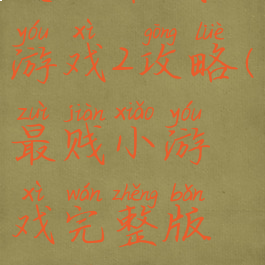 yóu xì gōng lüè
游戏2攻略(
zuì jiàn xiǎo yóu
最贱小游
xì wán zhěng bǎn
戏完整版